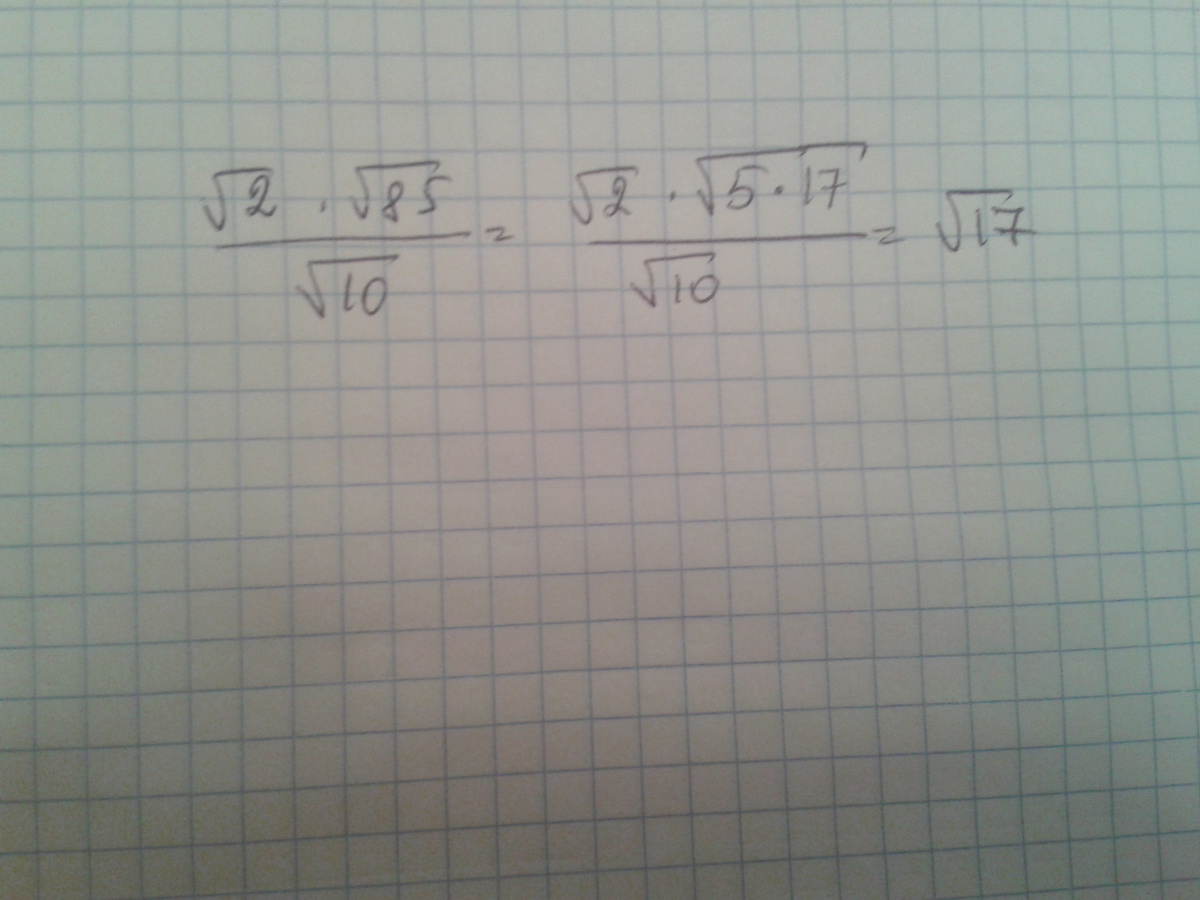 √2 · √85 / √10 = √2 · √5·17 / √10 = √17